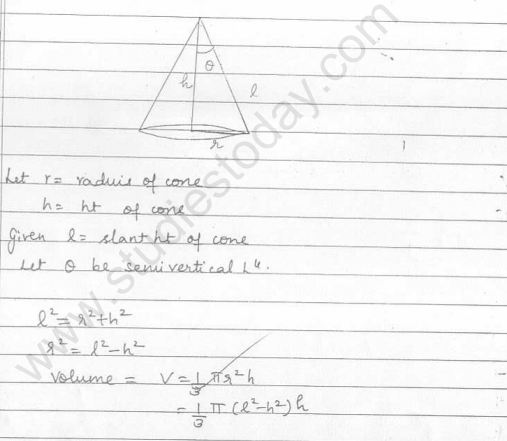 θ
h
l
r
Let r = radius of cone
h = ht of cone
Given l = slant ht of cone
Let θ be semivertical
l² = r² + h²
r² = l² - h²
Volume = V = 1/3 πr²h
= 1/3 π (l² - h²) h
www.studiestoday.com